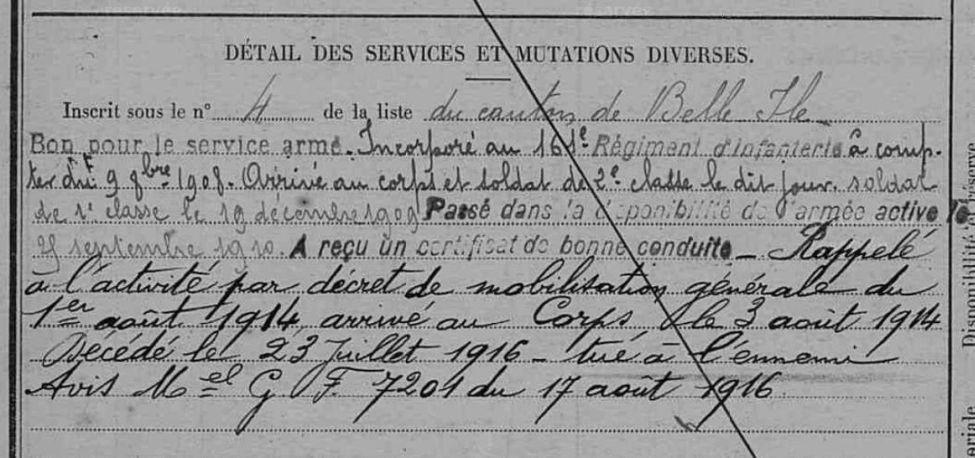 DÉTAIL DES SERVICES ET MUTATIONS DIVERSES.
Inscrit sous le n° 4 de la liste du canton de Belle Ile
Bon pour le service armé. Incorporé au 161e Régiment d'infanterie à comp-
ter du 9 8bre 1908. Arrivé au corps et soldat de 2e classe le dit jour. soldat
de 1e classe le 19 décembre 1909 Passé dans la disponibilité de l'armée active le
25 septembre 1910. A reçu un certificat de bonne conduite – Rappelé
à l'activité par décret de mobilisation générale du
1er août 1914, arrivé au Corps le 3 août 1914
Décédé le 23 Juillet 1916 – tué à l'ennemi
Avis Mel G F. 7201 du 17 août 1916